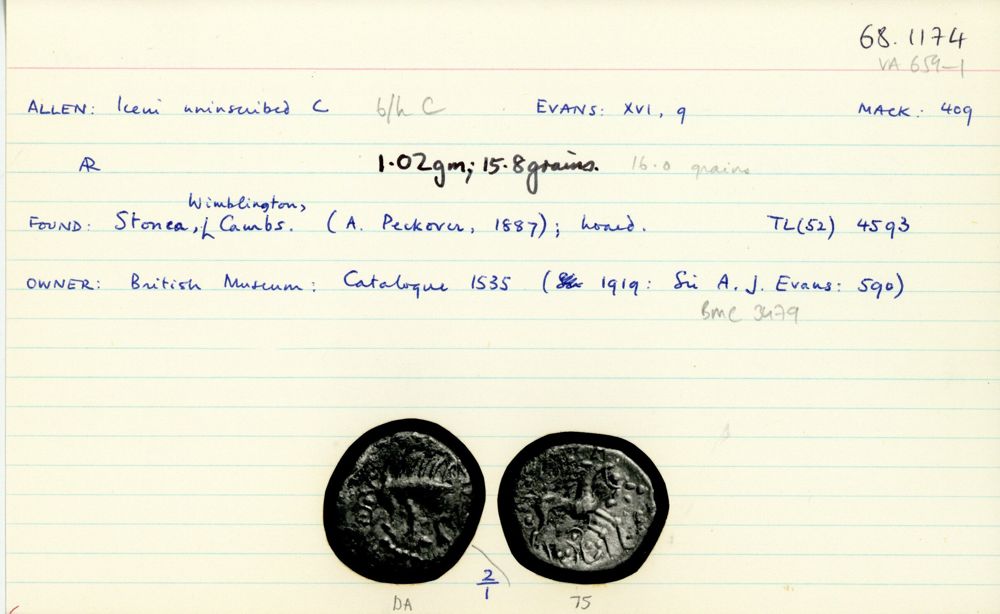 68.1174
VA 659-1
ALLEN: Iceni uninscribed C b/h C EVANS: XVI, 9 MACK: 409
AR 1.02gm; 15.8grains. 16.0 grains
Wimblington,
FOUND: Stonea, Cambs. (A. Peckover, 1887); hoard. TL(52) 4593
OWNER: British Museum: Catalogue 1535 ( 1919: Sir A. J. Evans: 590)
BMC 3479
2
1
DA 75